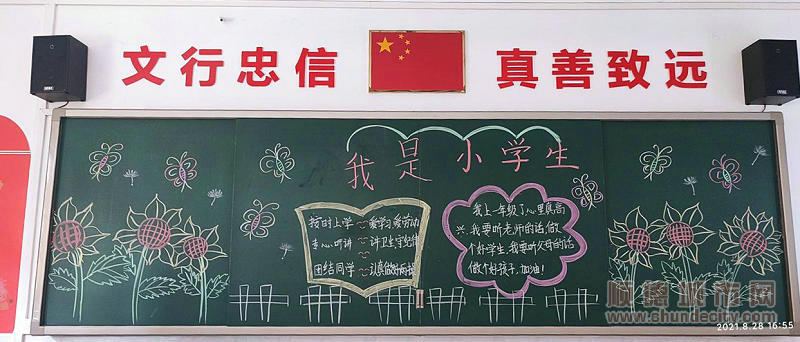 文行忠信 真善致远
我是小学生
按时上学～爱学习爱劳动
专心听讲～讲卫生守纪律
团结同学～认真做好两操
我上一年级了心里真高
兴.我要听老师的话,做
个好学生.我要听父母的话
做个好孩子.加油!
顺德城市网
www.shundecity.com
2021.8.28 16:55